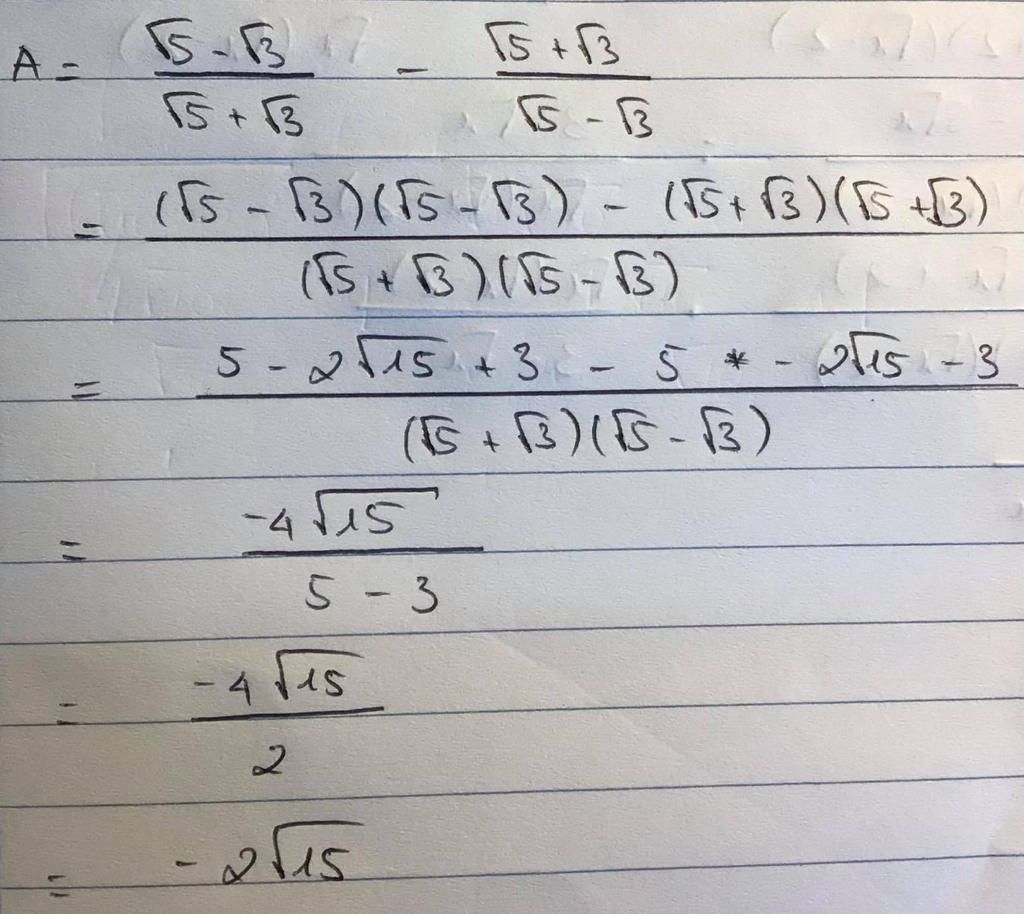 A = (√5 - √3)/(√5 + √3) - (√5 + √3)/(√5 - √3)
= ((√5 - √3)(√5 - √3) - (√5 + √3)(√5 + √3))/((√5 + √3)(√5 - √3))
= (5 - 2√15 + 3 - 5 * - 2√15 - 3)/((√5 + √3)(√5 - √3))
= (-4√15)/(5 - 3)
= (-4√15)/2
= -2√15